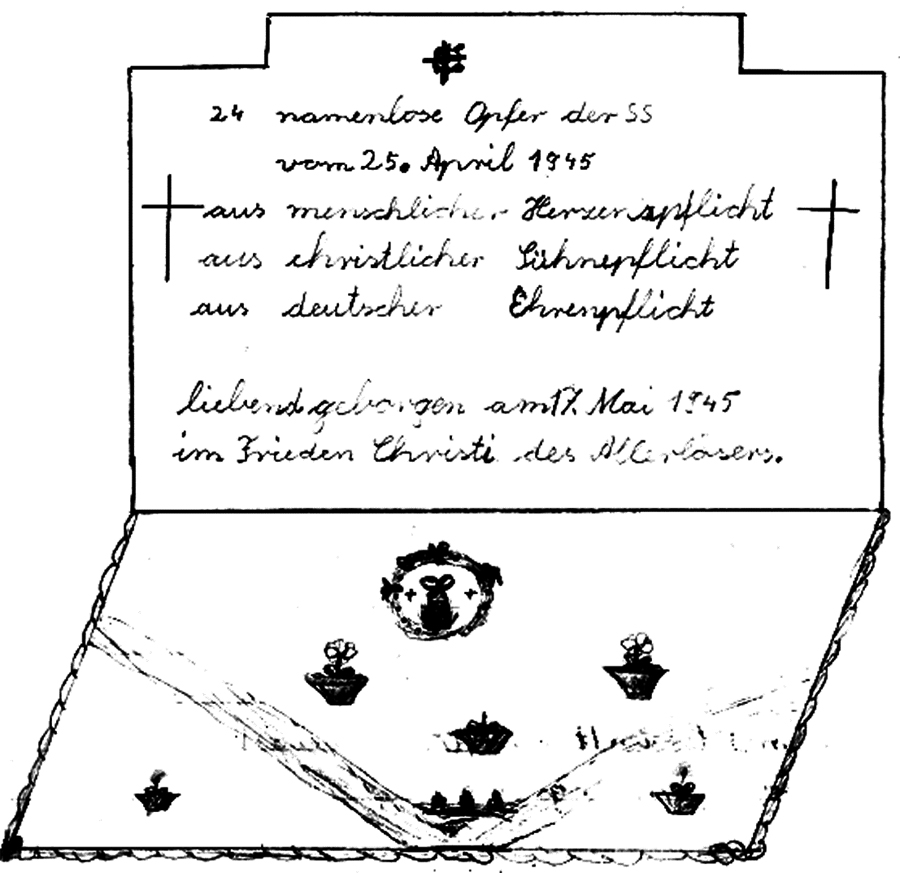 24 namenlose Opfer der SS
vom 25. April 1945
aus menschlicher Herzenspflicht
aus christlicher Sühnepflicht
aus deutscher Ehrenpflicht
liebend geborgen am 17. Mai 1945
im Frieden Christi des Allerlösers.